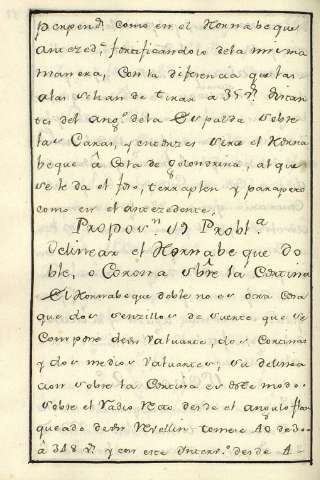 perpend.r como en el Hornabeque
anteced.te fortificandolo dela misma
manera, con la diferencia que las
alas se han de tirar a 35 v.s distan
tes del ang.o dela Espalda sobre
las Caras, y entonzes sera el Horna
beque â Cola de Golondrina, al que
se le da el foso, terraplen y parapeto
como en el antecedente.
Propos.n Probl.a
Delinear el Hornabeque do
ble, o Corona sôbre la Cortina
El Hornabeque doble no es otra cosa
que dos senzillos de suerte que se
Compone de un Valuarte, dos Cortinas
y dos medios Valuartes; su delinea
cion sobre la Cortina es deste modo.
sobre el Radio recto desde el angulo flan
queado de un Revellin tomese A D de 30
â 348 v.s y con este interv.o desde A